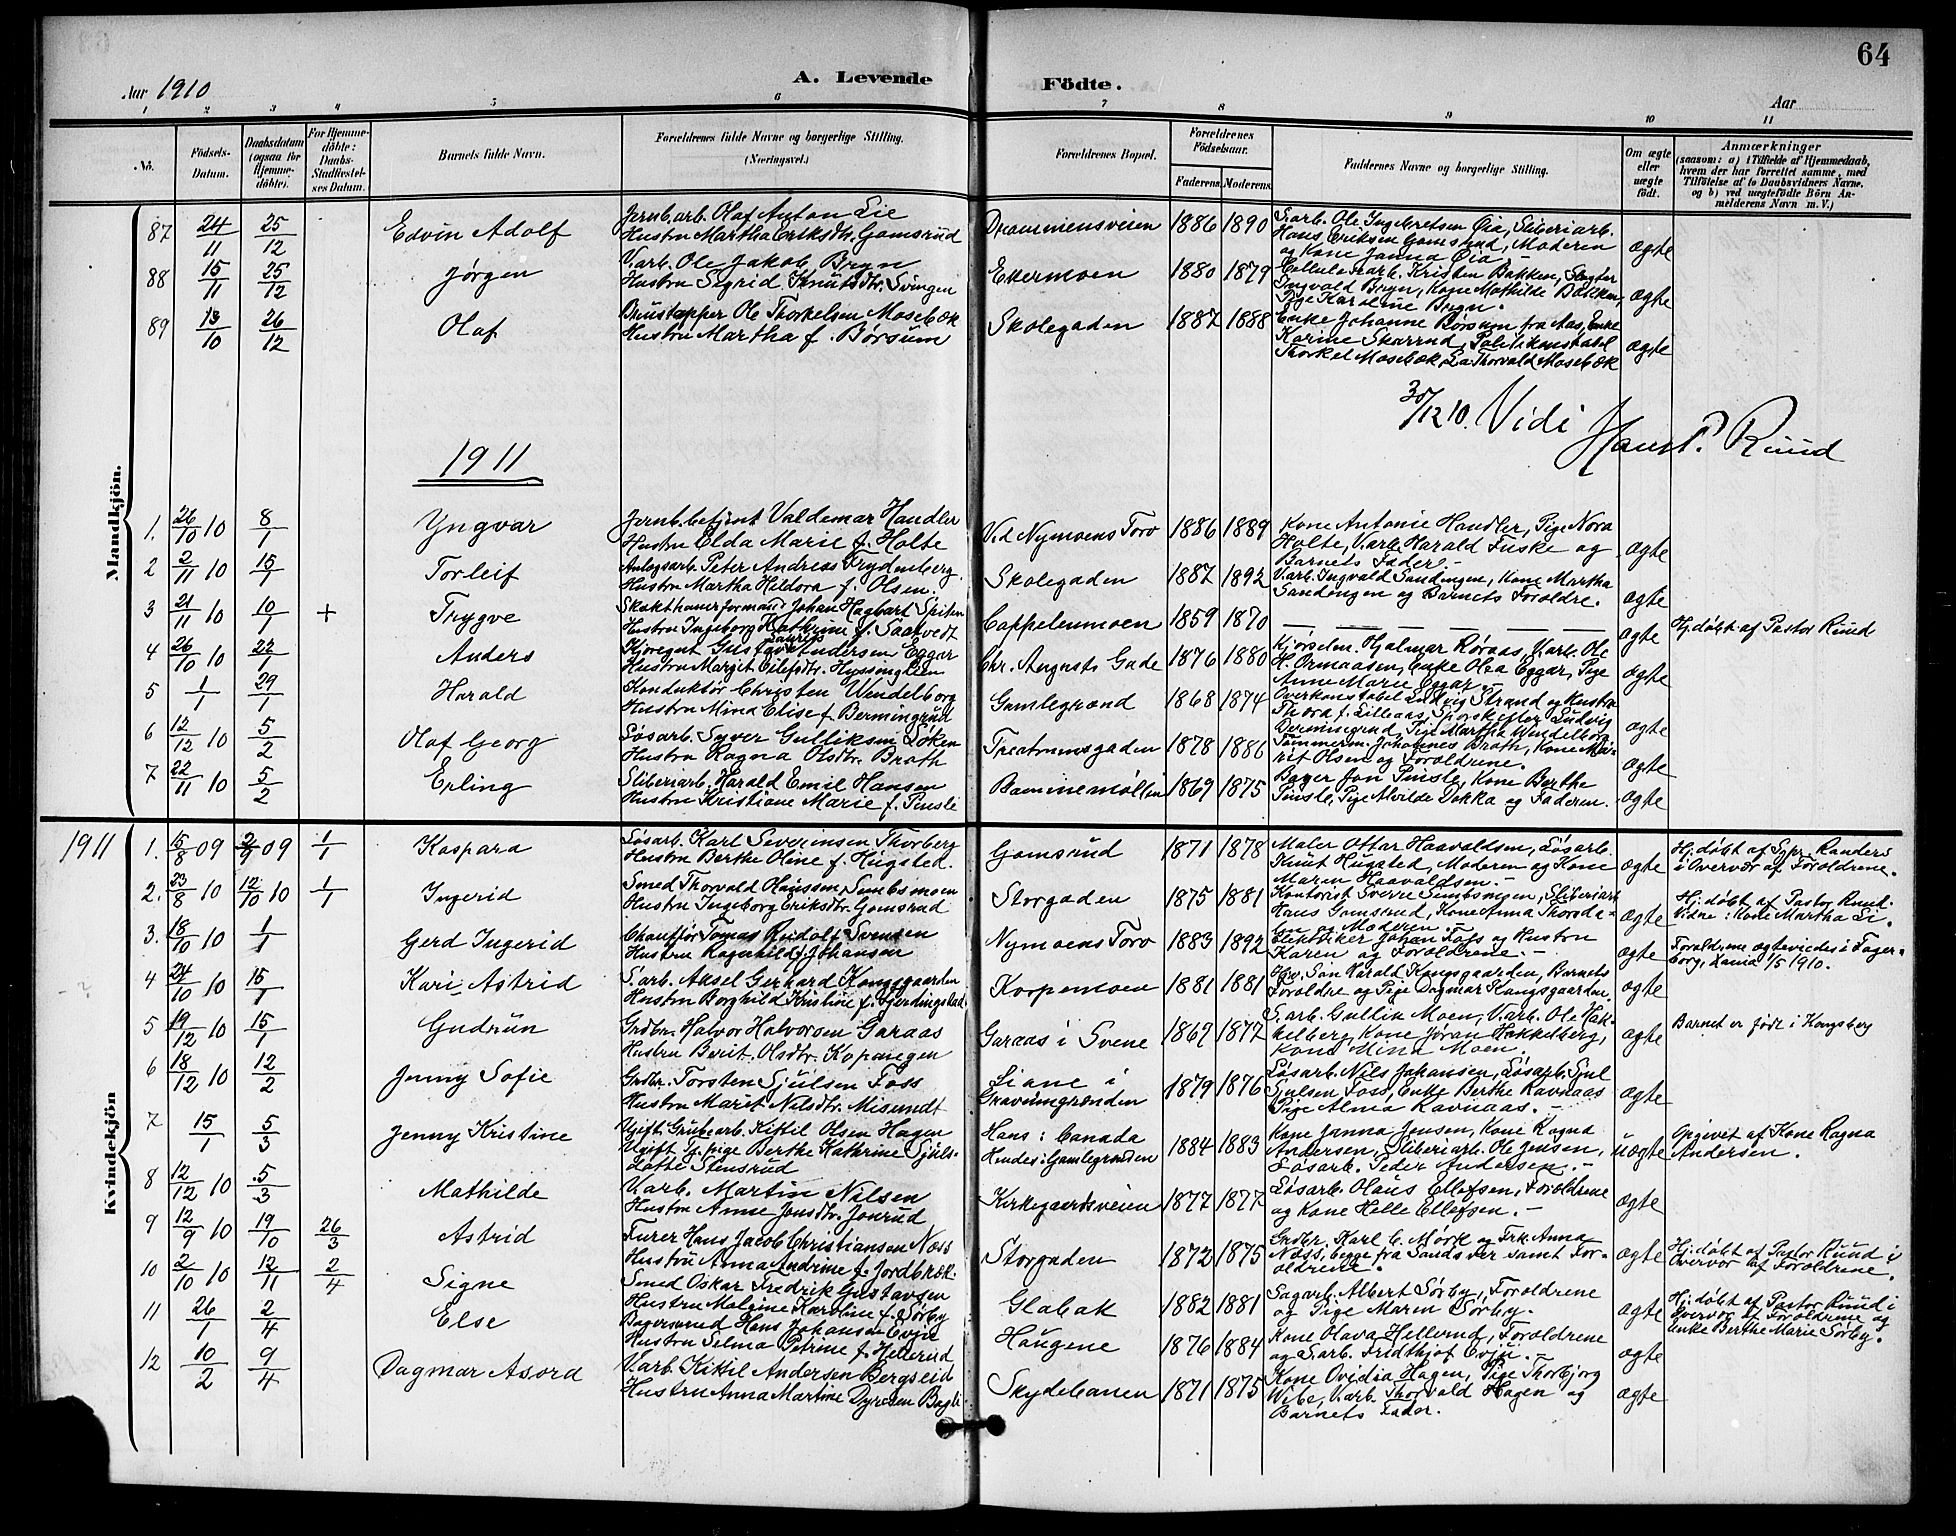 64
Aar 1910
A. Levende Födte.
Aar
1 2 3 4 5 6 7 8 9 10 11
No.
Födsels-Datum.
Daabsdatum (ogsaa for Hjemmedöbte).
For Hjemmedöbte: Daabs-Stadfæstelses Datum.
Barnets fulde Navn.
Forældrenes fulde Navne og borgerlige Stilling. (Næringsvei.)
Forældrenes Bopæl.
Forældrenes Födselsaar.
Faderens. Moderens.
Faddernes Navne og borgerlige Stilling.
Om ægte eller uægte födt.
Anmærkninger
(saasom: a) i Tilfælde af Hjemmedaab, hvem der har forrettet samme, med Tilföielse af to Daabsvidners Navne, og b) ved uægtefödte Börn Anmelderens Navn m. V.)
Mandkjön.
87 24/11 25/12 Edvin Adolf
Jernb.arb. Olaf Anton Lie
Hustru Martha Eriksdtr. Gomsrud
Drammensveien 1886 1890
S.arb. Ole Ingebretsen Øia, Sliberiarb.
Hans Eriksen Gomsrud, Moderen
og Kone Janna Øia. -
ægte
88 15/11 25/12 Jørgen
V.arb. Ole Jakob Bryn
Hustru Sigrid Knutsdtr. Svingen
Ettermoen 1880 1879
Cellulosearb. Kristen Bakken, Slagter
Ingvald Bryn, Kone Mathilde Bakken,
Pige Karoline Bryn.
ægte
89 13/10 26/12 Olaf
Brustapper Ole Thorkelsen Mosebæk
Hustru Martha f. Børsum
Skolegaden 1887 1888
Enke Johanne Børsum fra Aas, Enke
Karine Skarrud, Politikonstabel
Thorkel Mosebæk, La Thorvald Mosebæk
ægte
30/12 10. Vidi
Hans P. Ruud
1911
1. 26/10 10 8/1 Yngvar
Jernb.betjent Valdemar Handler
Hustru Elda Marie f. Holte
V.d Nymoens Torv 1886 1889
Kone Antonie Handler, Pige Nora
Holte, V.arb. Harald Fuske og
Barnets Fader. -
ægte
2 2/11 10 15/1 Torleif
Anlægsarb. Peter Andreas Frydenberg
Hustru Martha Heldora f. Olsen.
Skolegaden 1887 1892
V.arb. Ingvald Sandengen, Kone Martha
Sandengen og Barnets Forældre.
ægte
3 21/11 10 10/1 + Trygve
Johan Hagbart Spiten
Hustru Ingeborg Kathrine f. Saatvedt
Cappelenmoen 1859 1870
ægte
Hj.døbt af Pastor Ruud
4 26/10 10 22/1 Anders
Kjøregut Gustav Laurits Andersen Eggar
Hustru Margit Eilefsdtr. Hyssinglien
Chr. Augusts Gade 1876 1880
Kjørselm. Hjalmar Røraas, V.arb. Ole
H. Ormaasen, Enke Olea Eggar, Pige
Anne Marie Eggar. -
ægte
5 1/1 29/1 Harald
Konduktør Christen Wendelborg
Hustru Mina Elise f. Bermingrud
Gamlegrænd 1868 1874
Overkonstabel Ludvig Strand og Hustru
Thora f. Lilleaas, Sporskifter Ludvig
Bermingrud, Pige Martha Wendelborg
ægte
6 12/12 10 5/2 Olaf Georg
Løsarb. Syver Gulliksen Løken
Hustru Ragna Olsdtr. Brath
Theatrumsgaden 1878 1886
Tømmerm. Johannes Brath, Kone Marit Olsen og Forældrene.
ægte
7 22/11 10 5/2 Erling
Sliberiarb. Harald Emil Hansen
Hustru Kristiane Marie f. Pinsle
1869 1875
Bager Jon Pinsle, Kone Berthe
Pinsle, Pige Alvilde Dokka og Faderen.
ægte
Kvindekjön
1911 1. 15/8 09 09 1/1 Kaspara
Løsarb. Karl Severinsen Thorberg
Hustru Berthe Oline f. Hugsted.
Gomsrud 1871 1878
Maler Ottar Haavaldsen, Løsarb.
Knut Hugsted, Moderen og Kone
Maren Haavaldsen. -
ægte
Hj.døbt af Sgpr. Randers
i Overvær af Forældrene.
2. 23/8 10 12/10 10 1/1 Ingerid
Smed Thorvald Hanssen Sembsmoen
Hustru Ingeborg Eriksdtr. Gomsrud
Storgaden 1875 1881
Kontorist Sverre Sembsmoen, Sliberiarb.
Hans Gomsrud, Kone Anna
og Moderen. -
ægte
Hj.døbt af Pastor Ruud.
Vidne: Kone Martha Li.
3. 18/10 10 1/1 Gerd Ingerid
Chauffør Tomas Rudolf Svensen
Hustru Ragnhild f. Johansen
Nymoens Torv 1883 1892
Elektriker Johan Foss og Hustru
Karen og Forældrene. -
ægte
Forældrene ægteviedes i Fagerborg, Xania 1/5 1910.
- ?
4 24/10 10 15/1 Kari Astrid
S.arb. Aksel Gerhard Kongsgaarden
Hustru Borghild Kristine f. Gjerdingstad
Korpemoen 1881 1881
Gbr. Søn Harald Kongsgaarden, Barnets
Forældre og Pige Dagmar Kongsgaarden.
ægte
5 19/12 10 15/1 Gudrun
Grdbr. Halvor Halvorsen Garaas
Hustru Berit Olsdtr. Kopangen
Garaas i Svene 1869 1877
S.arb. Gullik Moen, V.arb. Ole Hakkelberg, Kone Jøran Hakkelberg,
Kone Mina Moen.
ægte
Barnet er født i Kongsberg
6 18/12 10 12/2 Jenny Sofie
Grdbr. Torsten Sjulsen Foss
Hustru Marit Nilsdtr. Misundt
Liane i
Gravningsgrænden 1879 1876
Løsarb. Nils Johansen, Løsarb. Sjul
Sjulsen Foss, Enke Berthe Ravnaas
Pige Alma Ravnaas. -
ægte
7 15/1 5/3 Jenny Kristine
Ugift Grubearb. Kittil Olsen Hagen
Ugift Tj.pige Berthe Kathrine Sjulsdatter Stensrud
Hans: Canada
Hendes: Gamlegrænden 1884 1883
Kone Janna Jensen, Kone Ragna
Andersen, Sliberiarb. Ole Jensen,
Løsarb. Peder Andersen. -
uægte
Opgivet af Kone Ragna
Andersen.
8 12/12 10 5/3 Mathilde
V.arb. Martin Nilsen
Hustru Anne Jonsdtr. Jonrud
Kirkegaardsveien 1877 1877
Løsarb. Olaus Ellefsen, Forældrene
og Kone Helle Ellefsen. -
ægte
9 12/9 10 19/10 26/3 Astrid
Furer Hans Jacob Christiansen Næss
Hustru Anna Andrine f. Jordbræk.
Storgaden 1872 1875
Grdbr. Karl C. Mørk og Frk. Anna
Næss, begge fra Sandsvær samt Forældrene.
ægte
Hj.døbt af Pastor Ruud i
Overvær af Forældrene.
10 2/10 10 12/11 2/4 Signe
Smed Oskar Fredrik Gustavsen
Hustru Malvine Karoline f. Sørby
Glabak 1882 1881
Sagarb. Albert Sørby, Forældrene
og Pige Maren Sørby.
ægte
Hj.døbt af Pastor Ruud i
Overvær af Forældrene og
Enke Berthe Marie Sørby.
11 26/1 2/4 Else
Bagersvend Hans Johansen Evju
Hustru Selma Petrine f. Hellerud
Haugene 1876 1884
Kone Olava Hellerud, Forældrene
og S.arb. Fridthjof Evju. -
ægte
12 10/2 9/4 Dagmar Asora
V.arb. Kittil Andersen Bergseid
Hustru Anna Martine Dyresen Bagli
Skydebanen 1871 1875
Kone Ovidia Hagen, Pige Thorbjørg
Wibe, V.arb. Thorvald Hagen og
Barnets Fader.
ægte